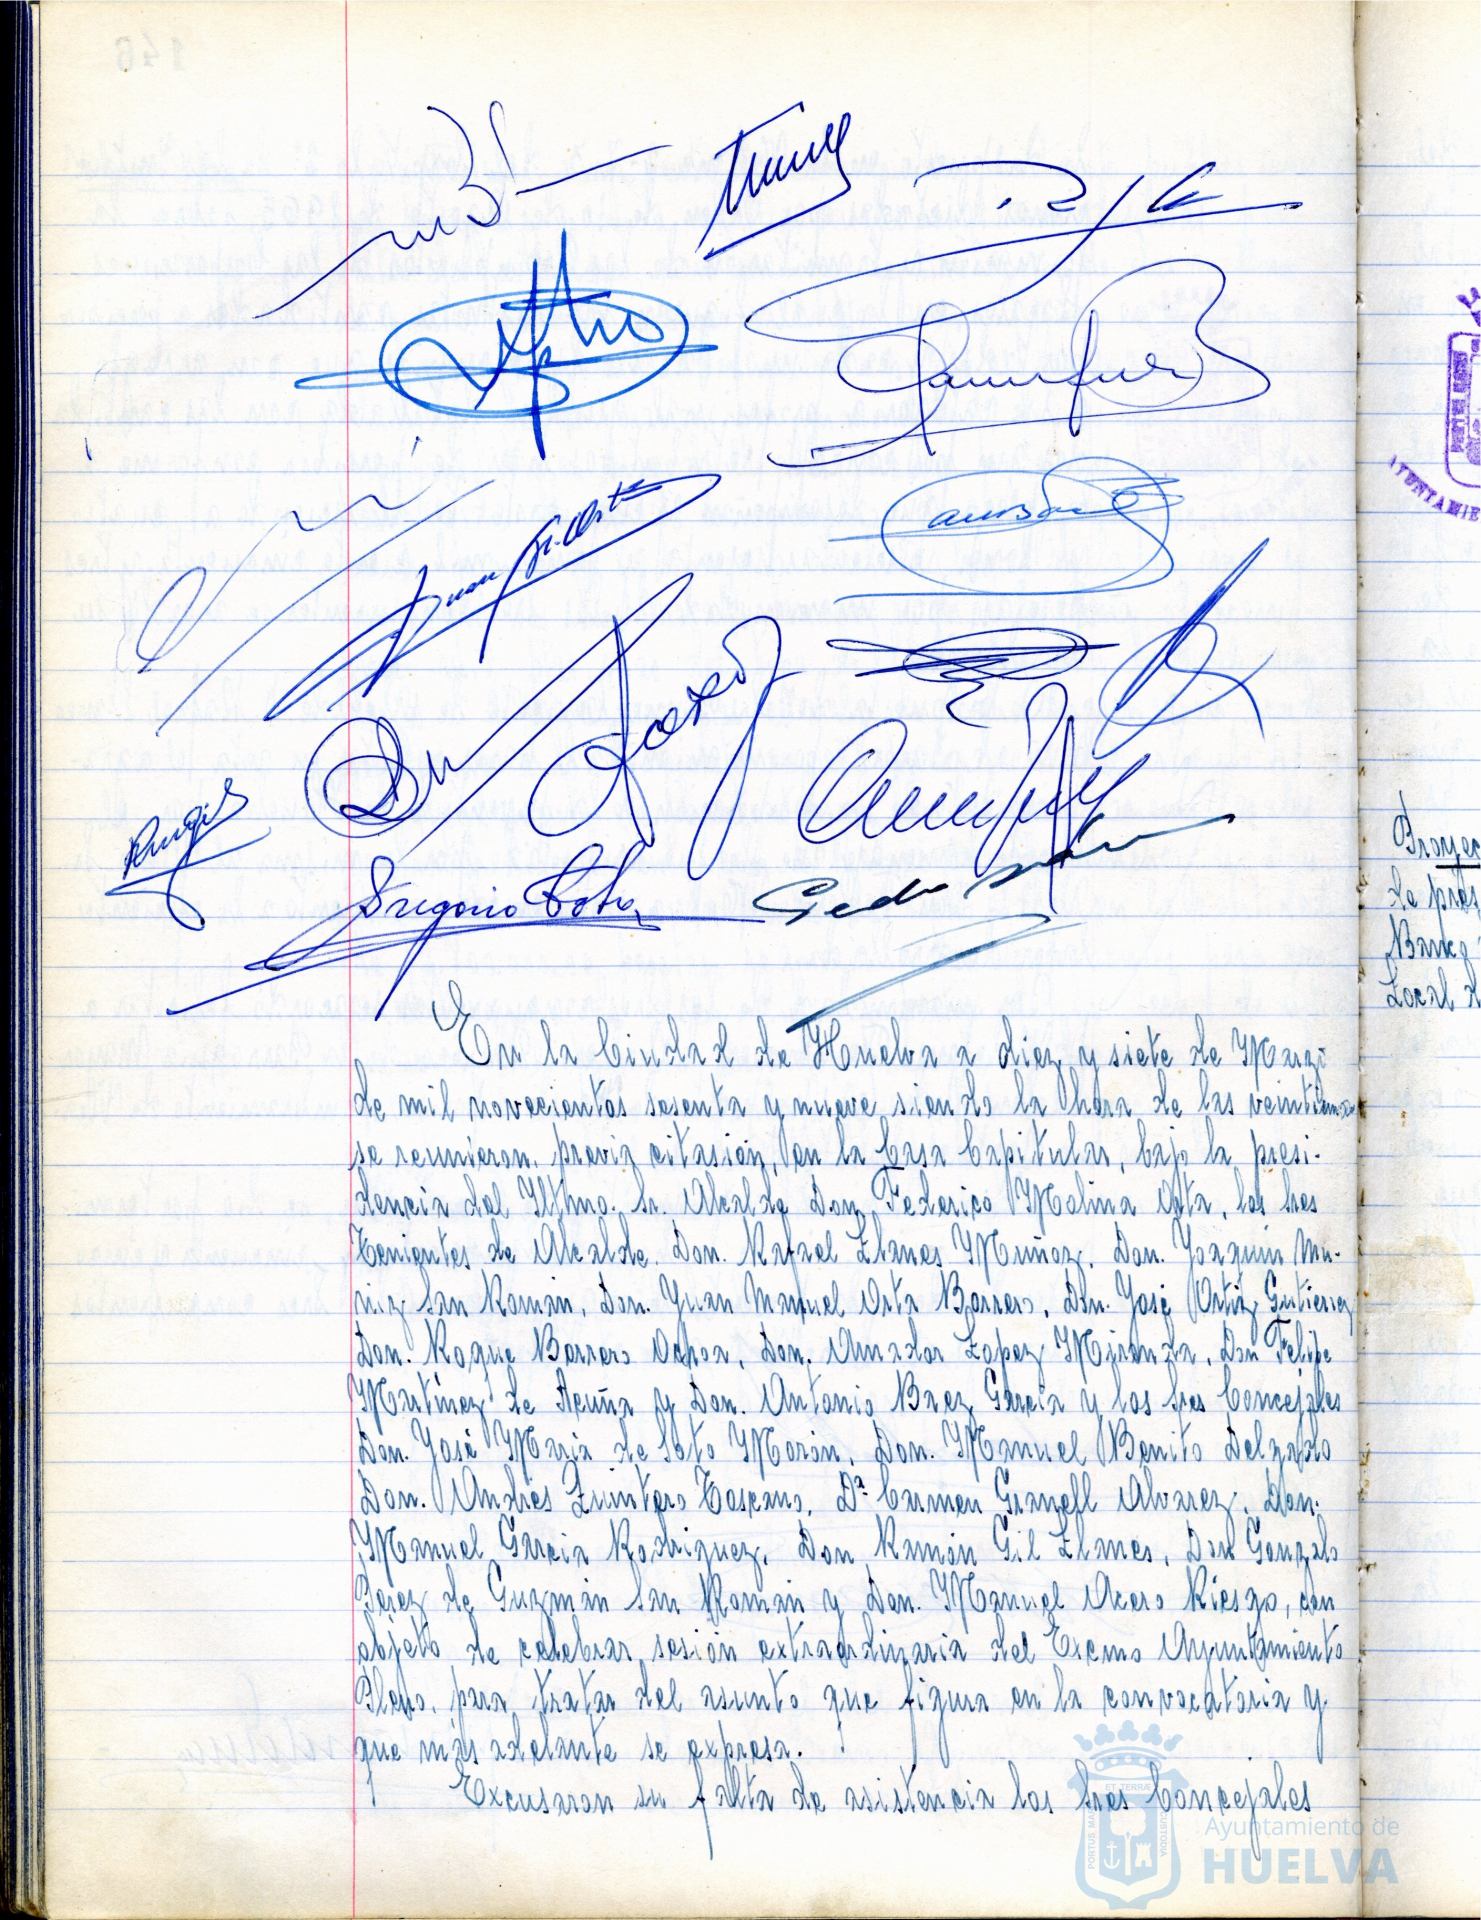 Gregorio
En la Ciudad de Huelva a diez y siete de Marzo
de mil novecientos sesenta y nueve siendo la hora de las veintiuna
se reunieron, previa citasión, en la Casa Capitular, bajo la presi-
dencia del Iltmo. Sr. Alcalde Don Federico Molina Orta, los Sres
Tenientes de Alcalde, Don. Rafael Llanes Muñoz, Don. Joaquin Mu-
ñiz San Román, Don. Juan Manuel Orta Borrero, Don. José Ortiz Gutierrez
Don. Roque Barrero Ochoa, Don. Amador Lopez Miranda, Don Felipe
Martínez de Acuña y Don. Antonio Baez Garcia y los Sres Concejales
Don. José María de Soto Morón, Don. Manuel Benito Delgado
Don. Andres Quintero Toscano, Dª Carmen Granell Alvarez, Don.
Manuel Garcia Rodriguez, Don Ramón Gil Llanes, Don Gonzalo
Pérez de Guzmán San Román y Don. Manuel Acero Riesgo, con
objeto de celebrar sesión extraordinaria del Excmo Ayuntamiento
Pleno, para tratar del asunto que figura en la convocatoria y
que más adelante se expresa.
Excusaron su falta de asistencia los Sres Concejales
Proyec
de pres
Banco
Local d
AYUNTAMIE
PORTUS MA
ET TERRÆ
CUSTODIA
Ayuntamiento de
HUELVA